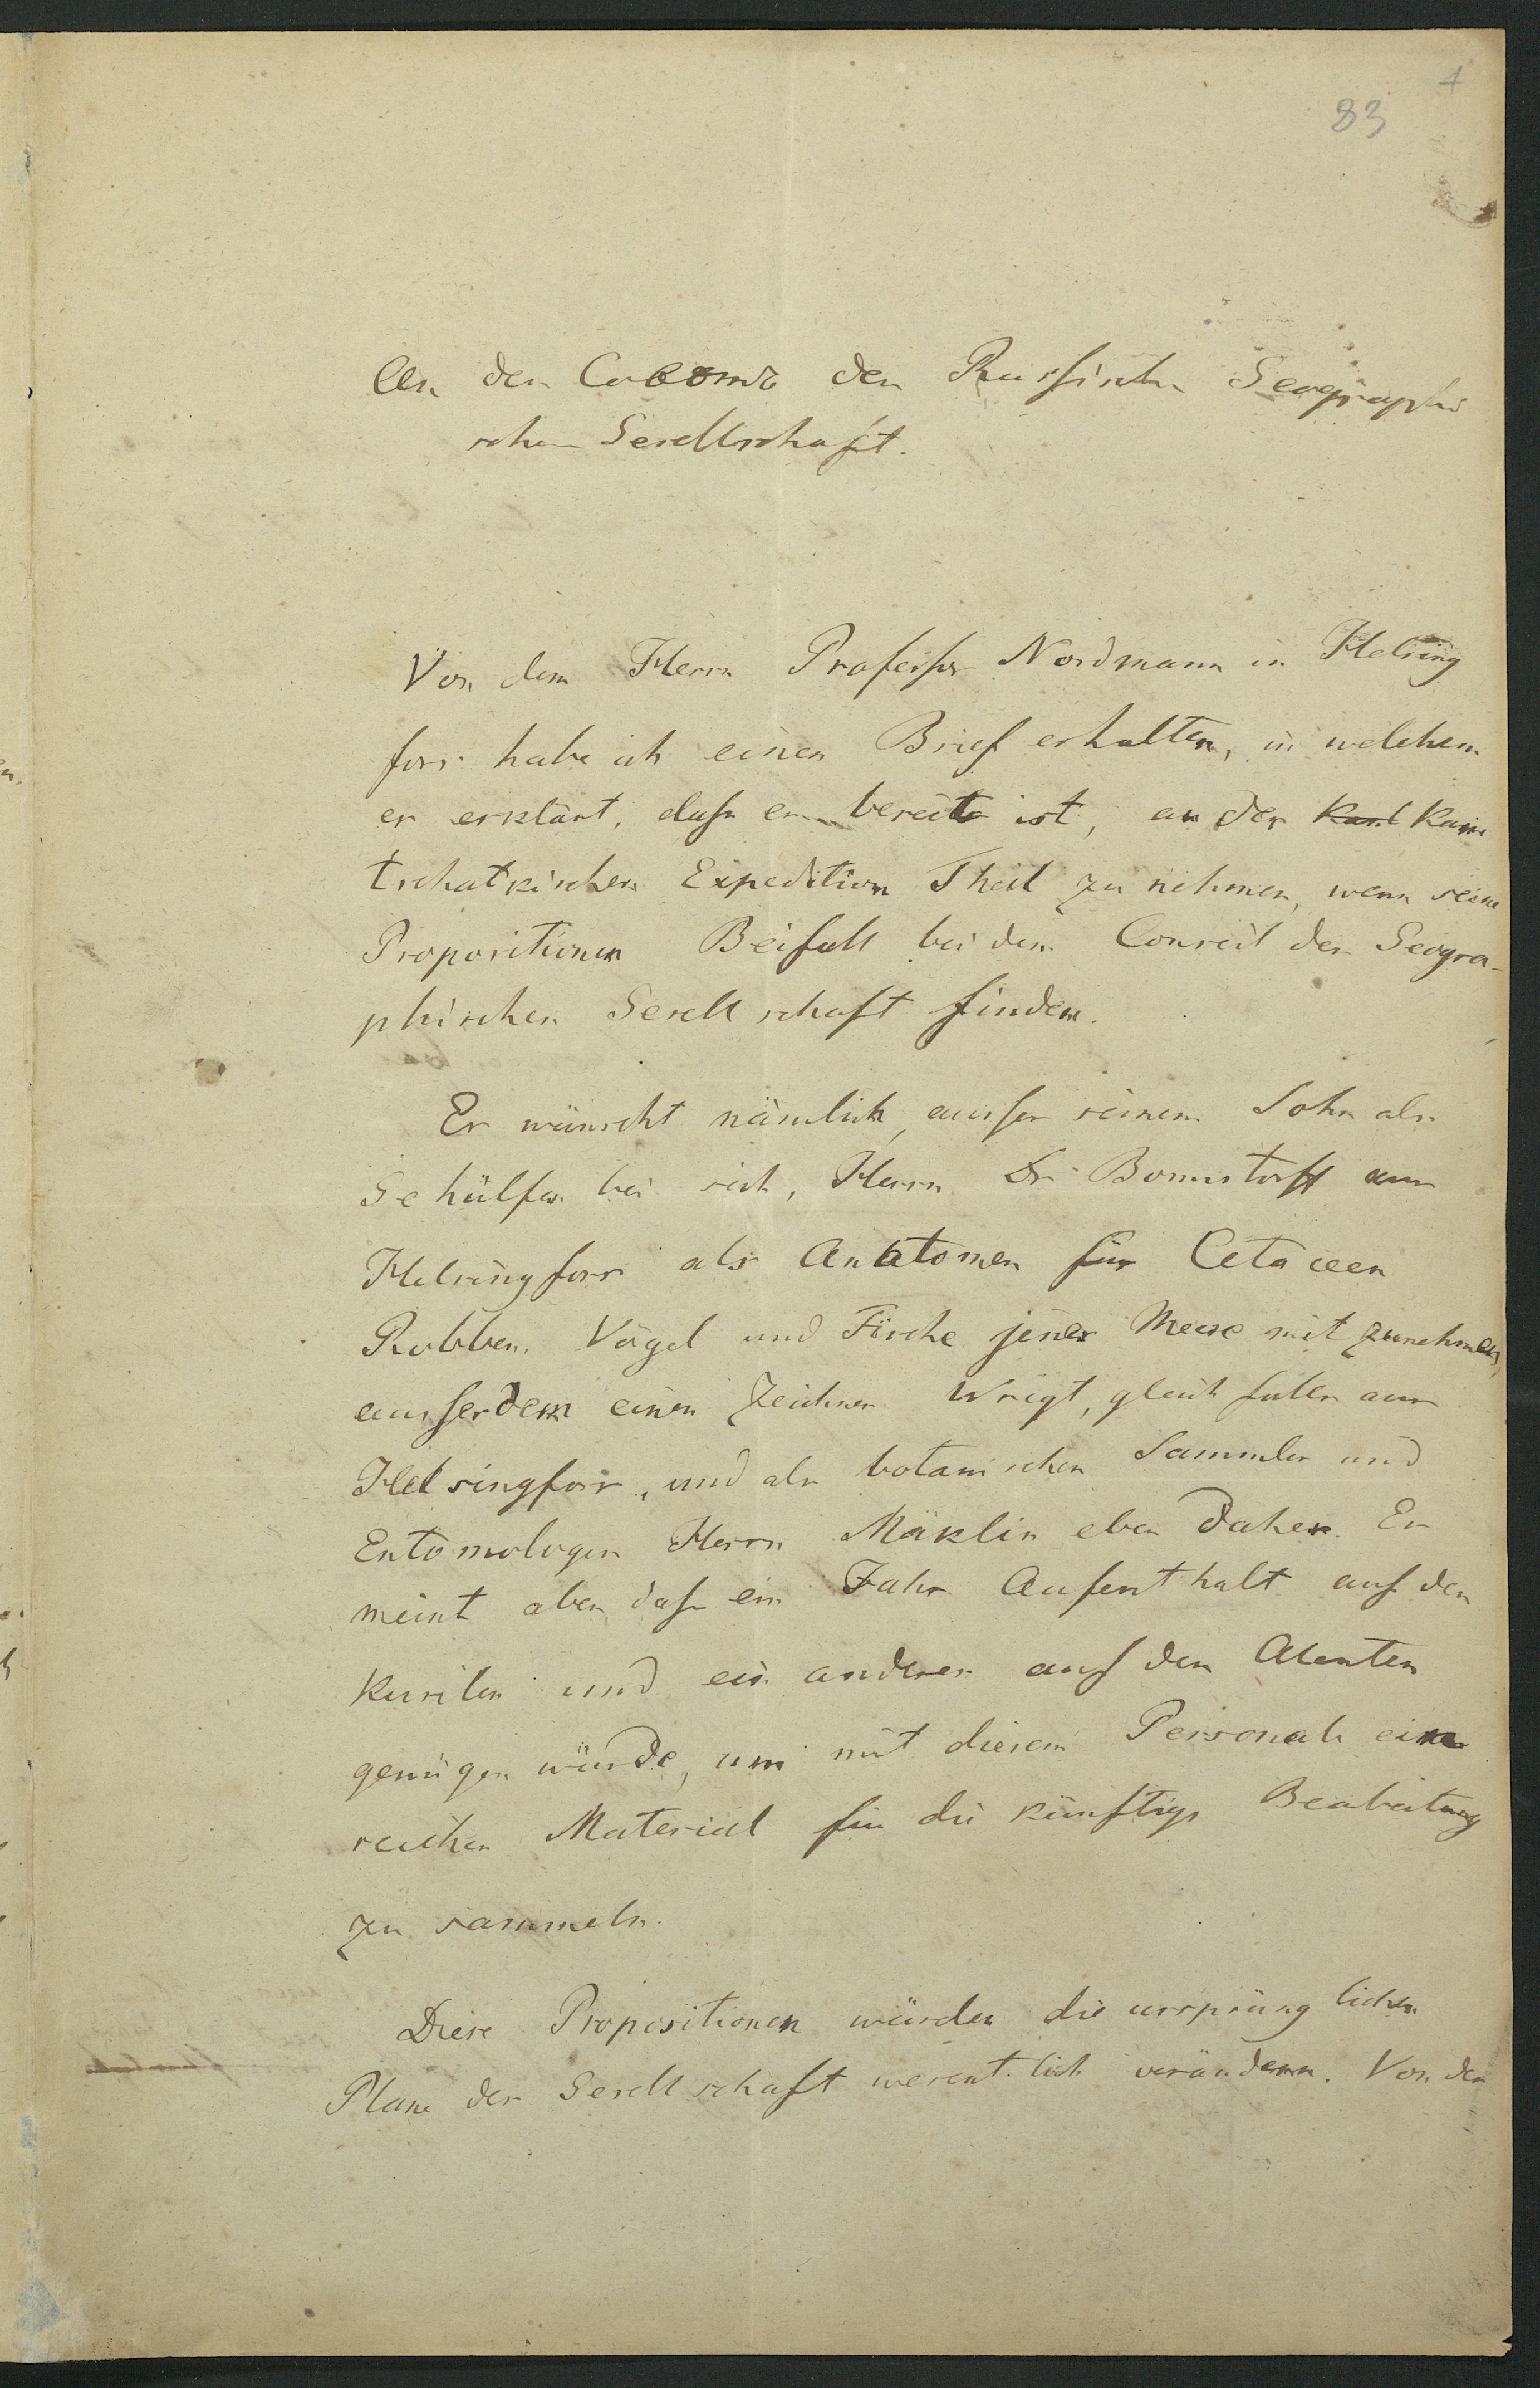 4
83
An den Совѣтъ der Russischen Geographi
schen Gesellschaft.
Von dem Herrn Professor Nordmann in Helsing
fors habe ich einen Brief erhalten, in welchem
er erklärt, dass er bereit ist, an der Kam
tschatkischen Expedition Theil zu nehmen, wenn seine
Propositionen Beifall bei dem Conseil der Geogra-
phischen Gesellschaft finden.
Er wünscht nämlich, ausser seinem Sohn als
Gehülfen bei sich, Herrn Dr Bonnstorff aus
Helsingfors als Anatomen für Cetaceen
Robben, Vögel und Fische jener Meere mit zunehmen,
ausserdem einen Zeichner Wrigt, gleichfalls aus
Helsingfors, und als botanischen Sammler und
Entomologen Herrn Mäklin eben daher. Er
meint aber dass ein Jahr Aufenthalt auf den
Kurilen und ein anderes auf den Aleuten
genügen würde, um mit diesem Personale ein
reiches Material für die künftige Bearbeitung
zu sammeln.
Diese Propositionen würden die ursprünglichen
Plane der Gesellschaft wesentlich verändern. Von der